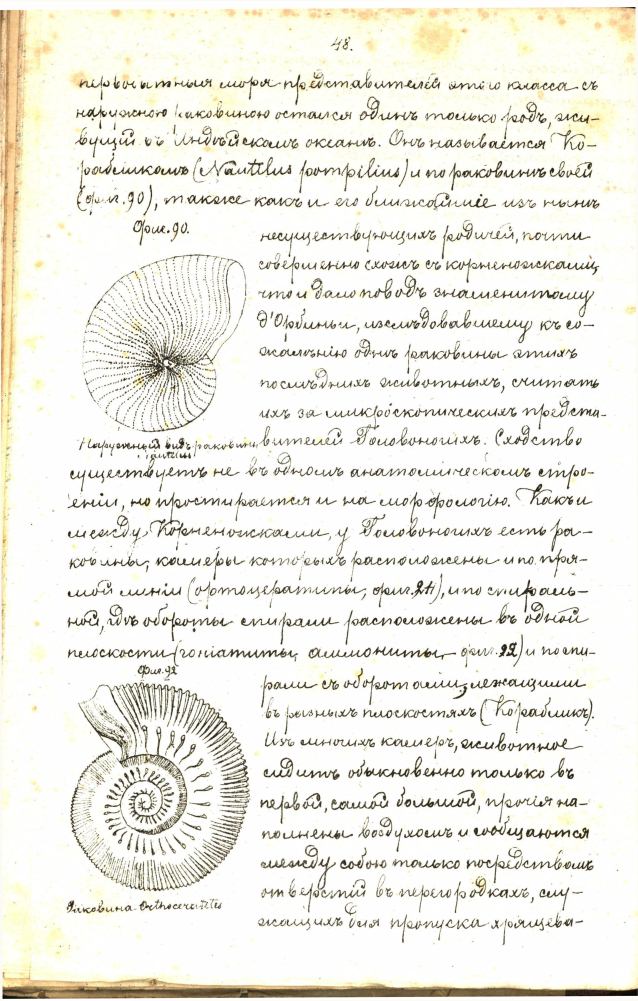 48.
первобытныя моря представителей этого класса съ
наружною раковиною остался одинъ только родъ, жи-
вущій въ Индѣйскомъ океанѣ. Онъ называется Ко-
рабликомъ (Nautilus pompilius) и по раковинѣ своей
(фиг. 90), также какъ и его ближайшіе изъ нынѣ
Фиг. 90.
несуществующихъ родичей, почти
совершенно схожъ съ корненожками,
что и дало поводъ знаменитому
д'Орбиньи, изслѣдовавшему къ со-
жалѣнію однѣ раковины этихъ
послѣднихъ животныхъ, считать
ихъ за микроскопическихъ предста-
Наружный видъ раковины
Nautilus
вителей Головоногихъ. Сходство
существуетъ не въ одномъ анатомическомъ стро-
еніи, но простирается и на морфологію. Какъ и
между Корненожками, у Головоногихъ есть ра-
ковины, камеры которыхъ расположены и по пря-
мой линіи (ортоцератиты, фиг. 24), и по спираль-
ной, гдѣ обороты спирали расположены въ одной
плоскости (гоніатиты, аммониты, фиг. 92) и по спи-
Фиг. 92
рали съ оборотами, лежащими
въ разныхъ плоскостяхъ (Корабликъ).
Изъ многихъ камеръ, животное
сидитъ обыкновенно только въ
первой, самой большой, прочія на-
полнены воздухомъ и сообщаются
между собою только посредствомъ
отверстій въ перегородкахъ, слу-
Раковина Orthoceratites
жащихъ для пропуска хрящева-